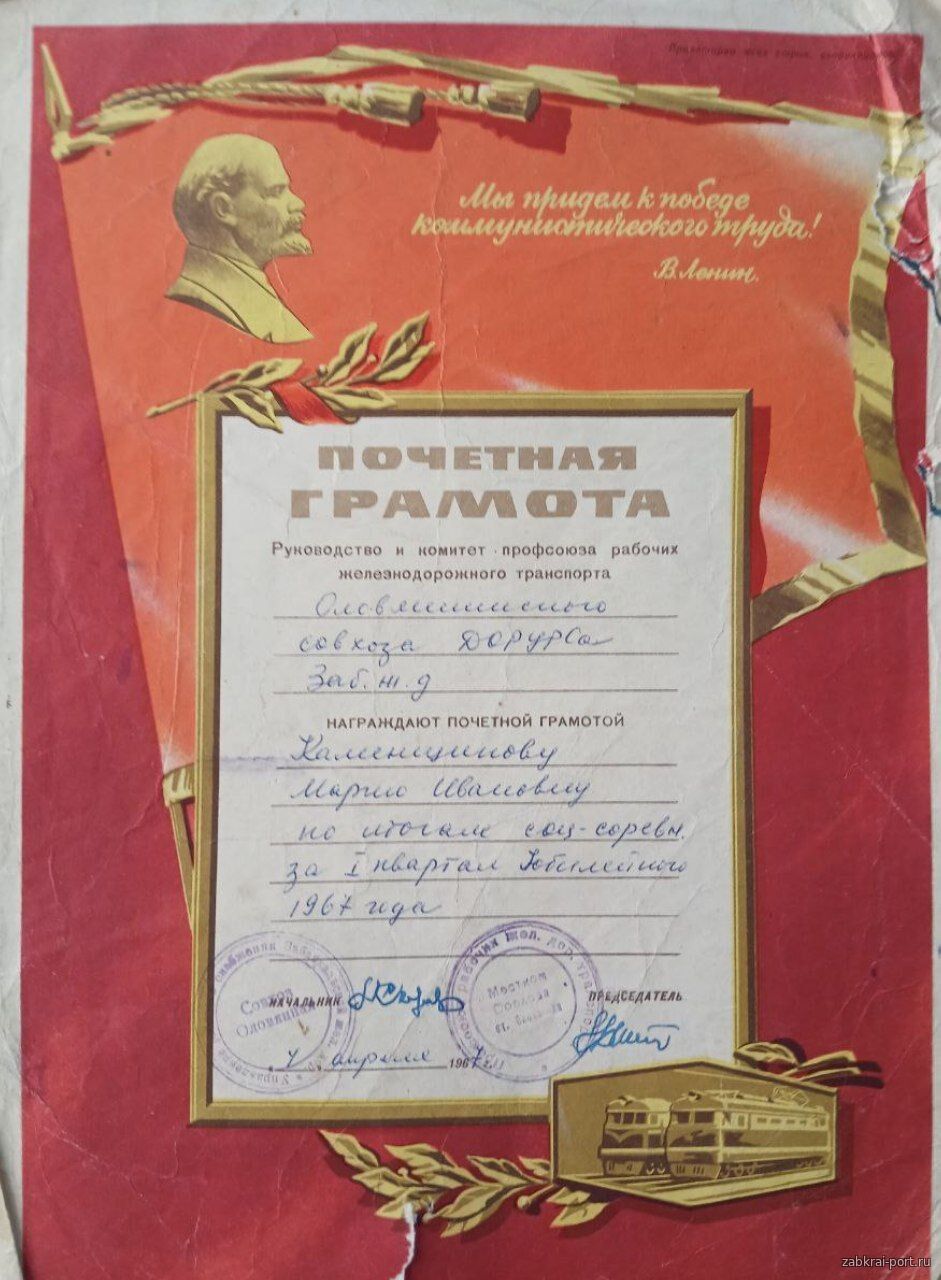 Пролетарии всех стран, соединяйтесь!
Мы придем к победе
коммунистического труда!
В. Ленин.
ПОЧЕТНАЯ
ГРАМОТА
Руководство и комитет профсоюза рабочих
железнодорожного транспорта
Оловяннинского
совхоза ДОРУРСа
Заб. ж. д
НАГРАЖДАЮТ ПОЧЕТНОЙ ГРАМОТОЙ
Каменщикову
Марию Ивановну
по итогам соц-соревн.
за I квартал Юбилейного
1967 года
НАЧАЛЬНИК
ПРЕДСЕДАТЕЛЬ
апреля 1967
Совхоз
Местком
Совхоза
рабочих жел. дор. транспорта
zabkrai-port.ru